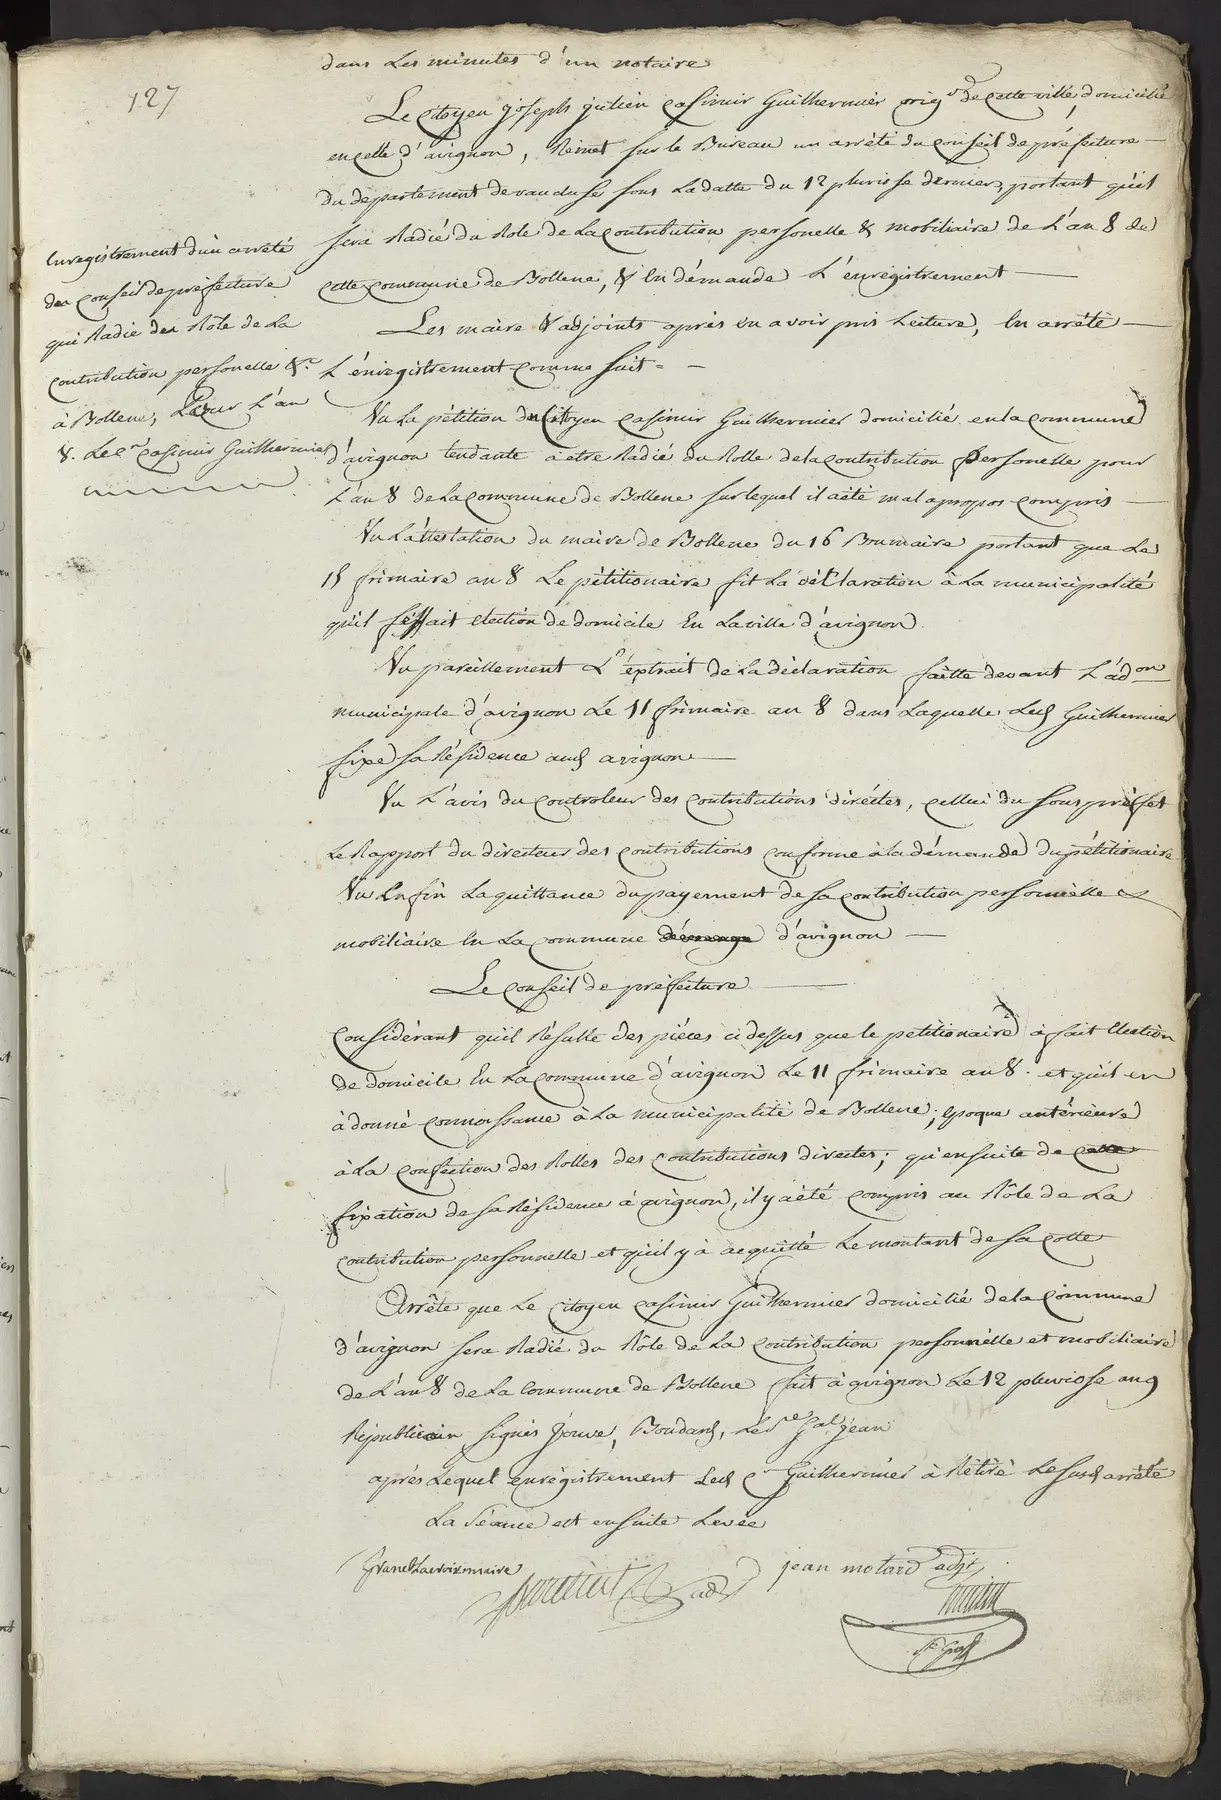 127
dans Les minutes d'un notaire
Le Citoyen joseph julien Casimir Guilhermier orig.re de cette ville, domicilié
en celle d'avignon, Remet sur le Bureau un arrêté du Conseil de préfecture
du departement de vaucluse sous La datte du 12 pluviose dernier, portant qu'il
sera Radié du Role de La Contribution personelle & mobiliaire de L'an 8 de
cette commune de Bollene, & En démande L'enrégistrement
Les maire & adjoints après en avoir pris Lecture, En arrête
L'énregistrement Comme suit = -
Enregistrement d'un arrêté
du Conseil de préfecture
qui Radie du Rôle de La
Contribution personelle &.a
à Bollene, Pour L'an
8. Le C.en Casimir Guilhermier
Vu La pétition du Citoyen Casimir Guilhermier domicilié en la Commune
d'avignon tendante à etre Radié du Rolle de la Contribution Personelle pour
L'an 8 de La Commune de Bollene sur lequel il a été mal apropos Compris
Vu L'attestation du maire de Bollene du 16 Brumaire portant que Le
15 frimaire an 8 Le pétitionaire fit La déclaration à La municipalité
qu'il fesait élection de domicile En La ville d'avignon
Vu pareillement L'éxtrait de La déclaration faitte devant L'ad.on
municipale d'avignon Le 11 frimaire an 8 dans Laquelle Led Guilhermier
fixe sa Résidence aud avignon
Vu L'avis du Controleur des Contributions diréctes, Cellui du sous préfet
Le Rapport du directeur des Contributions Conforme à la démande du pétitionaire
Vu Enfin La quittance du payement de sa Contribution personnelle &
mobiliaire En La Commune d'avignon
Le Conseil de préfecture
Considérant qu'il Résulte des piéces ci dessus que le petitionaire à fait Election
de domicile En La Commune d'avignon Le 11 frimaire an 8. et qu'il en
à donné Connoissance à La municipalité de Bollene; époque antérieure
à La Confection des Rolles des Contributions directes; qu'ensuite de cette
fixation de sa Résidence à avignon, il y a été Compris au Rôle de La
Contribution personnelle et qu'il y à acquitté Le montant de sa Cotte
Arrête que Le Citoyen Casimir Guilhermier domicilié de la Commune
d'avignon sera Radié du Rôle de La Contribution personnelle et mobiliaire
de L'an 8 de La Commune de Bollene fait à avignon Le 12 pluviose an 9
Républicain signés Jouve, Boudard, Le s.re g.al jean
après Lequel enrégistrement Led C.en Guilhermier à Rétiré Le susd arrêté
La Séance est ensuite Levée
jean motard adjt